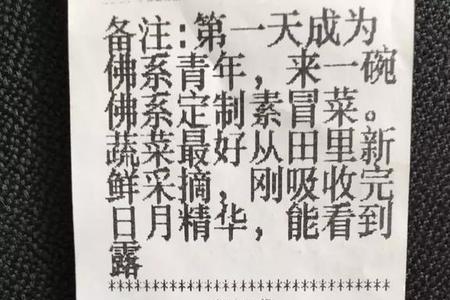 备注：第一天成为
佛系青年，来一碗
佛系定制素冒菜。
蔬菜最好从田里新
鲜采摘，刚吸收完
日月精华，能看到
露
********************************